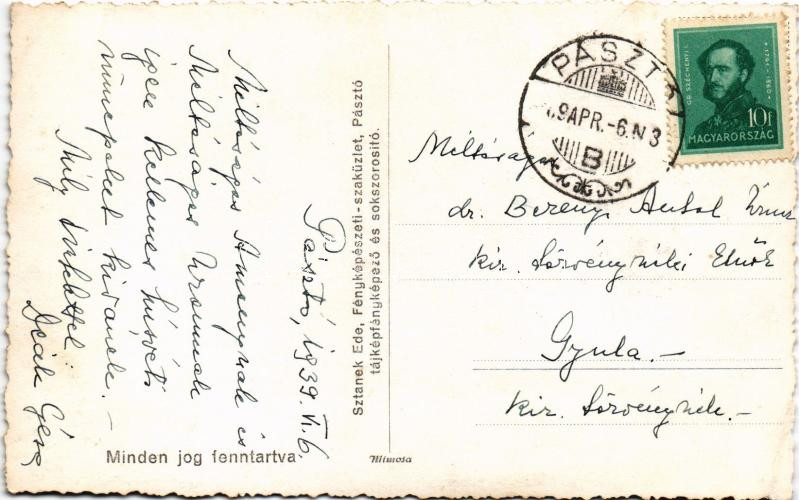 Pásztó, 1939. VI. 6.
Méltóságos Asszonynak és
Méltóságos Urannak
igen kellemes húsvéti
ünnepeket kivánok. -
Mély tisztelettel:
Deák Géza
Minden jog fenntartva
Sztanek Ede, Fényképészeti-szaküzlet, Pásztó
tájképfényképező és sokszorosító.
Mimosa
PÁSZTÓ
9 APR. -6. N 3
B
GR. SZÉCHENYI I.
* 1791 - 1860 *
10f
MAGYARORSZÁG
Méltóságos
dr. Berényi Antal Urnak
kir. törvényszéki Elnök
Gyula. -
kir. törvényszék. -